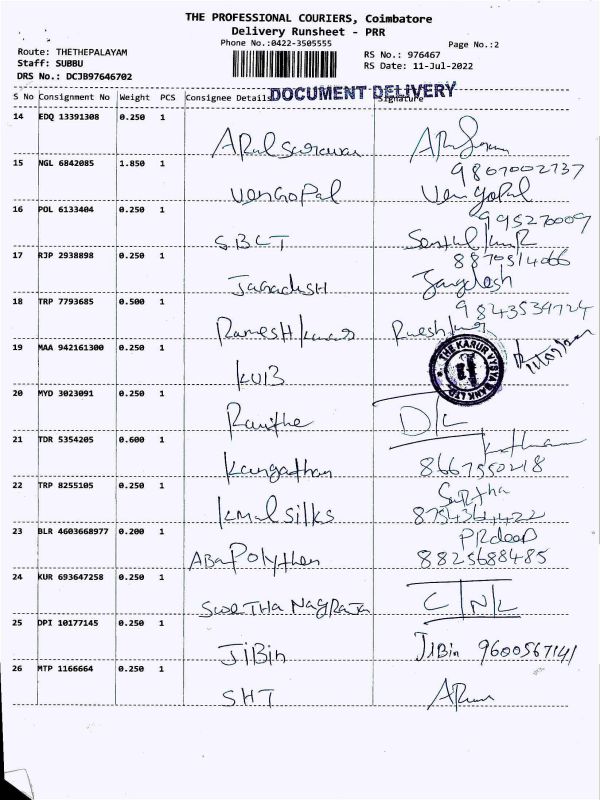 THE PROFESSIONAL COURIERS, Coimbatore
Delivery Runsheet - PRR
Phone No.:0422-3505555
Page No.:2
Route: THETHEPALAYAM
Staff: SUBBU
DRS No.: DCJB97646702
RS No.: 976467
RS Date: 11-Jul-2022
S No Consignment No Weight PCS Consignee Details Signature
DOCUMENT DELIVERY
14 EDQ 13391308 0.250 1
Arul Saravanan
9867002737
15 NGL 6842085 1.850 1
VenGoPal VenGoPal
995270009
16 POL 6133404 0.250 1
S.B.C.T Senthil kumar
8870514066
17 RJP 2938898 0.250 1
JagadisH Jangdesh
9843534724
18 TRP 7793685 0.500 1
RamesH kumar
THE KARUR VYSYA BANK LTD.
19 MAA 942161300 0.250 1
KVB
20 MYD 3023091 0.250 1
Ranithe D/L
21 TDR 5354205 0.600 1
Kangathan 8667550218
22 TRP 8255105 0.250 1
Saritha
kmal silks 8754364422
23 BLR 4603668977 0.200 1
PRdeep
ABa Polythen 8825688485
24 KUR 693647258 0.250 1
SweTHa NagRaja C/N/L
25 DPI 10177145 0.250 1
JiBin JiBin 9600567141
26 MTP 1166664 0.250 1
SHT Arun